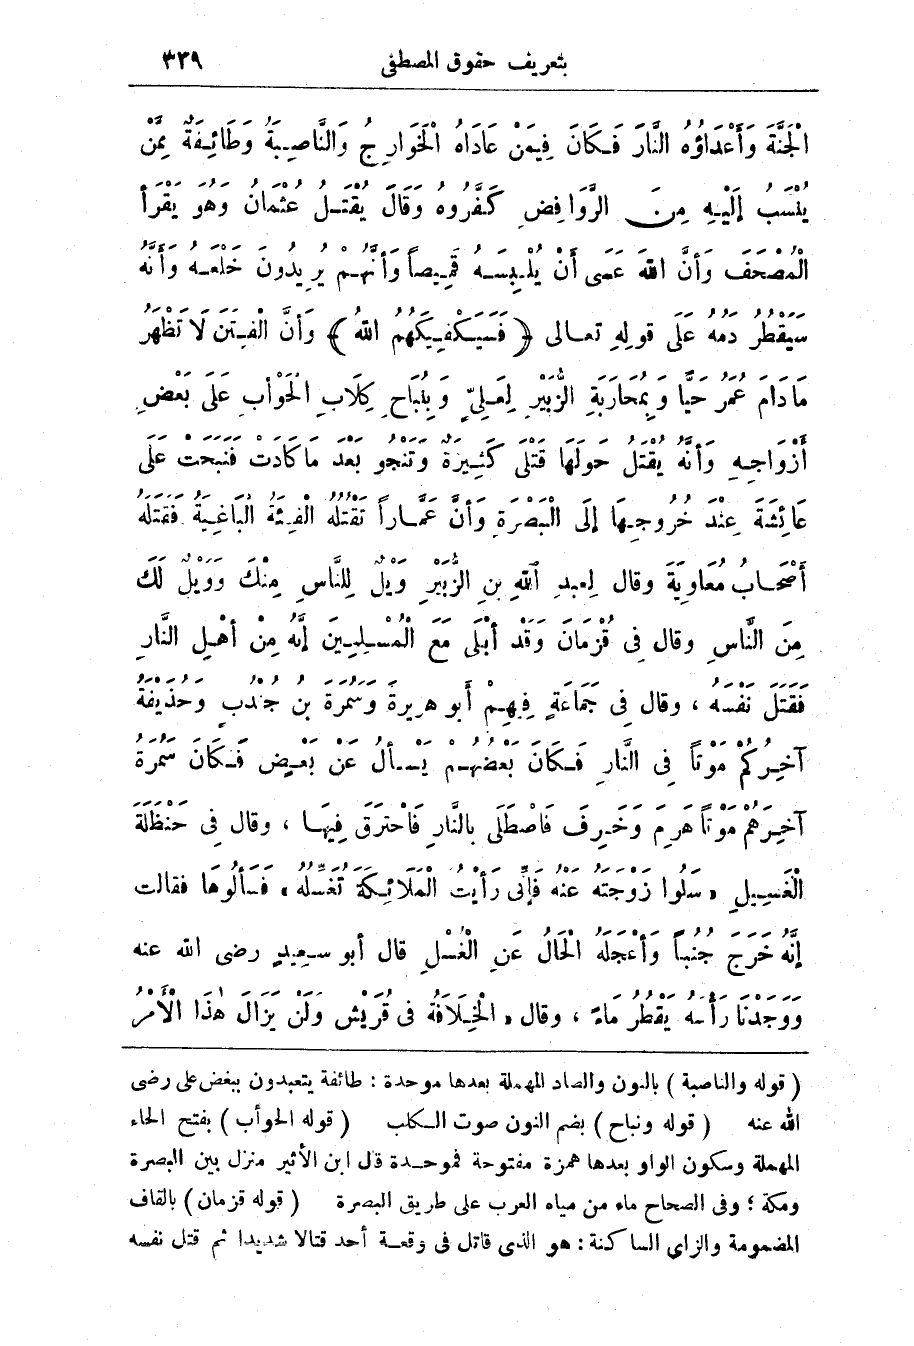 بتعريف حقوق المصطفى ٣٣٩
الْجَنَّةَ وَأَعْدَاؤُهُ النَّارَ فَكَانَ فِيمَنْ عَادَاهُ الْخَوَارِجُ وَالنَّاصِبَةُ وَطَائِفَةٌ مِمَّنْ
يُنْسَبُ إِلَيْهِ مِنَ الرَّوَافِضِ كَفَّرُوهُ وَقَالَ يُقْتَلُ عُثْمَانُ وَهُوَ يَقْرَأُ
الْمُصْحَفَ وَأَنَّ اللهَ عَسَى أَنْ يُلْبِسَهُ قَمِيصاً وَأَنَّهُمْ يُرِيدُونَ خَلْعَهُ وَأَنَّهُ
سَيَقْطُرُ دَمُهُ عَلَى قَوْلِهِ تعالى ﴿ فَسَيَكْفِيكَهُمُ اللهُ ﴾ وَأَنَّ الْفِتَنَ لَا تَظْهَرُ
مَا دَامَ عُمَرُ حَيًّا وَبِمُحَارَبَةِ الزُّبَيْرِ لِعَلِيٍّ وَبِنُبَاحِ كِلَابِ الْحَوْأَبِ عَلَى بَعْضِ
أَزْوَاجِهِ وَأَنَّهُ يُقْتَلُ حَوْلَهَا قَتْلَى كَثِيرَةٌ وَتَنْجُو بَعْدَ مَا كَادَتْ فَنَبَحَتْ عَلَى
عَائِشَةَ عِنْدَ خُرُوجِهَا إِلَى الْبَصْرَةِ وَأَنَّ عَمَّاراً تَقْتُلُهُ الْفِئَةُ الْبَاغِيَةُ فَقَتَلَهُ
أَصْحَابُ مُعَاوِيَةَ وقال لِعَبْدِ اللهِ بنِ الزُّبَيْرِ وَيْلٌ لِلنَّاسِ مِنْكَ وَوَيْلٌ لَكَ
مِنَ النَّاسِ وقال فى قُزْمَانَ وَقَدْ أَبْلَى مَعَ الْمُسْلِمِينَ إِنَّهُ مِنْ أَهْلِ النَّارِ
فَقَتَلَ نَفْسَهُ ، وقال فى جَمَاعَةٍ فِيهِمْ أَبو هريرةَ وَسَمُرَةُ بنُ جُنْدُبٍ وَحُذَيْفَةُ
آخِرُكُمْ مَوْتاً فى النَّارِ فَكَانَ بَعْضُهُمْ يَسْأَلُ عَنْ بَعْضٍ فَكَانَ سَمُرَةُ
آخِرَهُمْ مَوْتاً هَرِمَ وَخَرِفَ فَاصْطَلَى بالنَّارِ فَاحْتَرَقَ فِيهَا ، وقال فى حَنْظَلَةَ
الْغَسِيلِ « سَلُوا زَوْجَتَهُ عَنْهُ فَإِنِّى رَأَيْتُ الْمَلَائِكَةَ تُغَسِّلُهُ » فَسَأَلُوهَا فقالت
إِنَّهُ خَرَجَ جُنُباً وَأَعْجَلَهُ الْحَالُ عَنِ الْغُسْلِ قال أبو سعيدٍ رضى الله عنه
وَوَجَدْنَا رَأْسَهُ يَقْطُرُ مَاءً ، وقال « الْخِلَافَةُ فى قُرَيْشٍ وَلَنْ يَزَالَ هٰذَا الْأَمْرُ
( قوله والناصبة ) بالنون والصاد المهملة بعدها موحدة : طائفة يتعبدون ببغض على رضى
الله عنه ( قوله ونباح ) بضم النون صوت الكلب ( قوله الحوأب ) بفتح الحاء
المهملة وسكون الواو بعدها همزة مفتوحة فموحدة قال ابن الأثير منزل بين البصرة
ومكة ؛ وفى الصحاح ماء من مياه العرب على طريق البصرة ( قوله قزمان ) بالقاف
المضمومة والزاي الساكنة : هو الذى قاتل فى وقعة أحد قتالا شديدا ثم قتل نفسه